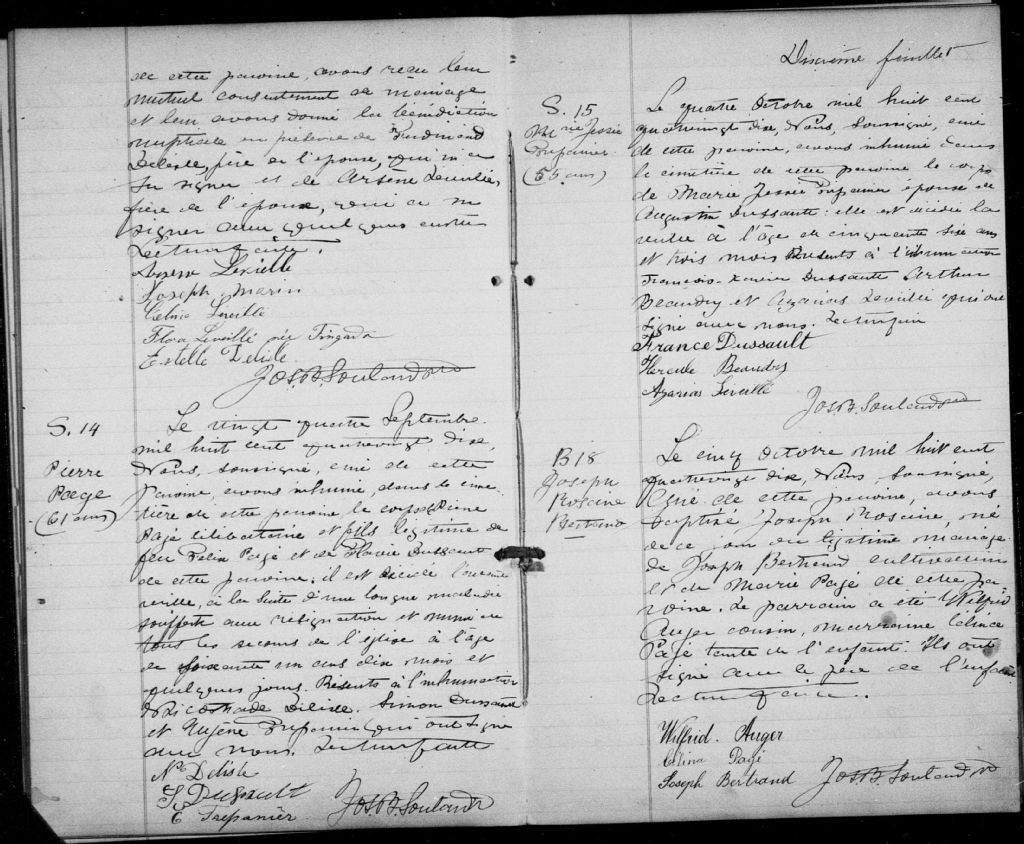 de cette paroisse, avons reçu leur
mutuel consentement de mariage
et leur avons donné la bénédiction
nuptiale en présence de Ferdinand
Delisle, père de l'épouse, qui n'a
su signer et de Arsène Leveillé,
frère de l'époux, qui a
signer avec quelques autres
Lecture faite.
Leveille
Joseph Marin
Celina Leveillé
Flora Leveillé née
Estelle Delisle
Jos. B. Souland
S. 14
Pierre
Page
(61 ans)
Le vingt quatre Septembre
mil huit cent quatrevingt dix,
Nous, soussigné, curé de cette
paroisse, avons inhumé, dans le cime-
tière de cette paroisse le corps de Pierre
Pagé célibataire et fils légitime de
feu Felix Pagé et de Flavie Dussault
de cette paroisse; il est décédé l'avant
veille, à la suite d'une longue maladie
soufferte avec résignation et muni de
tous les secours de l'église à l'âge
de soixante un ans dix mois et
quelques jours. Présents à l'inhumation
Delisle, Simon Dussault
et Eugène Trepanier qui ont signé
avec nous. Lecture faite
N. Delisle
S. Dussault
E Trepanier
Jos. B. Souland
Dixième feuillet
S. 15
M rie Jessie
Trepanier
(55 ans)
Le quatre Octobre mil huit cent
quatrevingt dix, Nous, soussigné, curé
de cette paroisse, avons inhumé dans
le cimetière de cette paroisse le corps
de Marie Jessie Trepanier épouse de
Augustin Dussault: elle est décédée la
veille à l'âge de cinquante six ans
et trois mois Présents à l'inhumation
Francois-Xavier Dussault Arthur
Beaudry et Azarias Leveillé qui ont
signé avec nous. Lecture faite
France Dussault
Hercule Beaudry
Azarias Leveille
Jos. B. Souland
B 18
Joseph
Rosaire
Bertrand
Le cinq Octobre mil huit cent
quatrevingt dix, Nous, soussigné,
Curé de cette paroisse, avons
baptisé Joseph Rosaire, né
de ce jour du légitime mariage
de Joseph Bertrand cultivateur
et de Marie Pagé de cette pa
roisse. Le parrain a été Wilfrid
Auger cousin, marraine Célina
Pagé tante de l'enfant. Ils ont
signé avec le père de l'enfant
Lecture faite.
Wilfrid. Auger
Célina Pagé
Joseph Bertrand
Jos. B. Souland